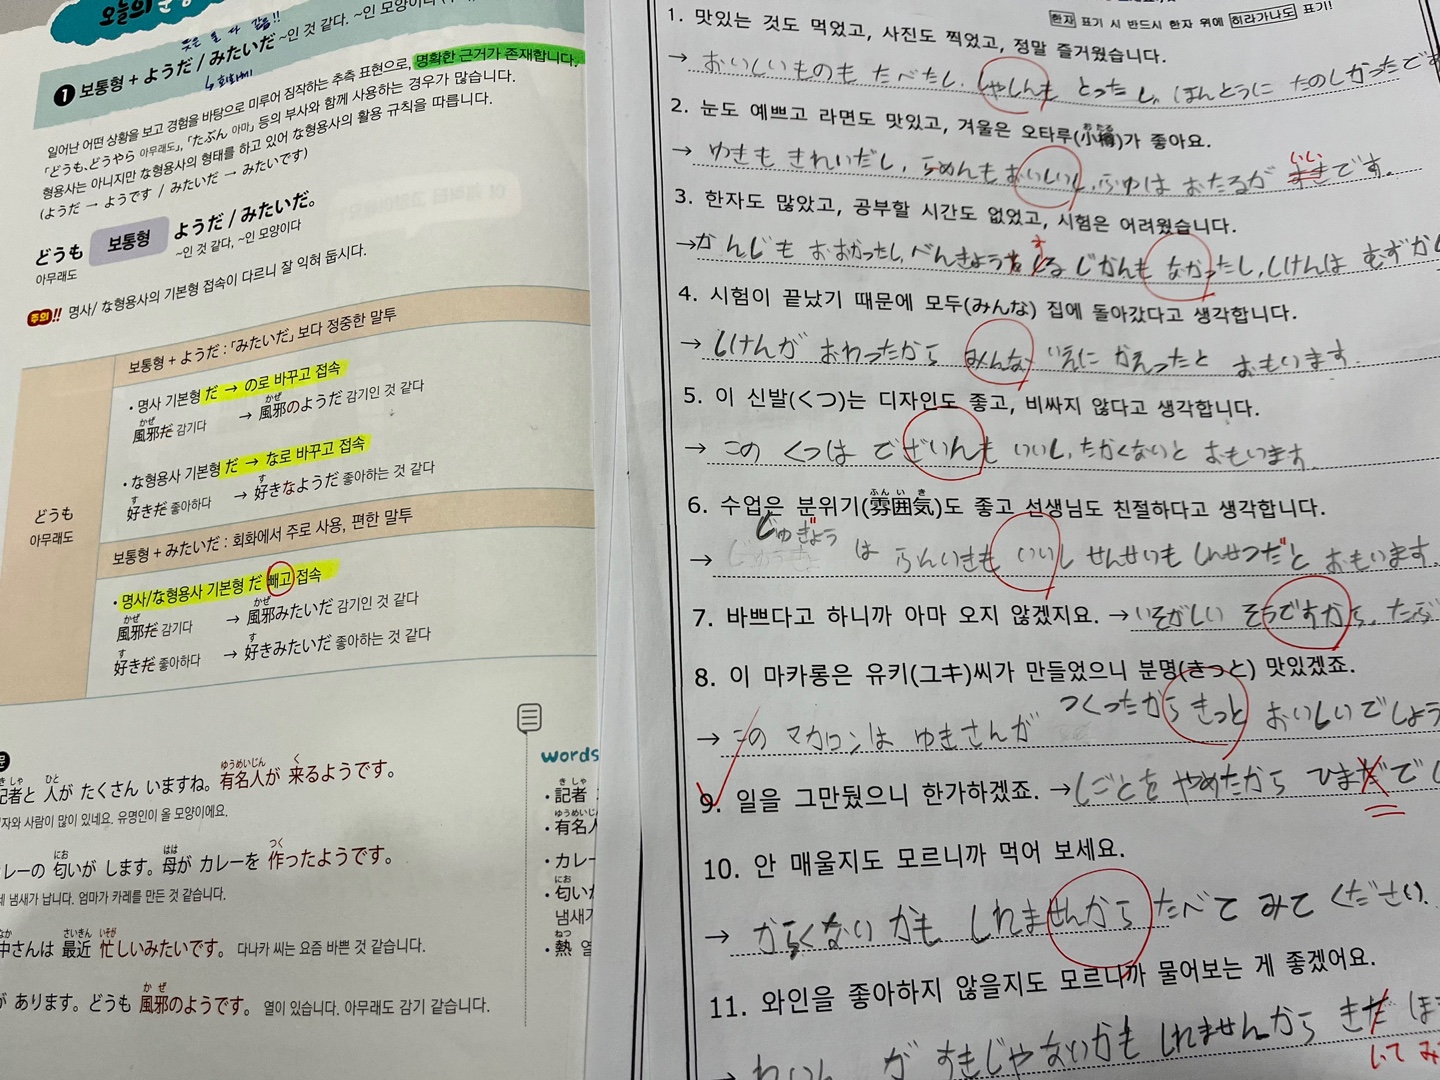 오늘의
뜻은 둘 다 같음!!
❶ 보통형 + ようだ / みたいだ ~인 것 같다. ~인 모양이다
↳ 회화체
일어난 어떤 상황을 보고 경험을 바탕으로 미루어 짐작하는 추측 표현으로, 명확한 근거가 존재합니다.
「どうも、どうやら 아무래도」, 「たぶん 아마」 등의 부사와 함께 사용하는 경우가 많습니다.
형용사는 아니지만 な형용사의 형태를 하고 있어 な형용사의 활용 규칙을 따릅니다.
(ようだ → ようです / みたいだ → みたいです)
どうも 보통형 ようだ / みたいだ。
아무래도 ~인 것 같다, ~인 모양이다
주의!! 명사/ な형용사의 기본형 접속이 다르니 잘 익혀 둡시다.
どうも
아무래도
보통형 + ようだ : 「みたいだ」 보다 정중한 말투
• 명사 기본형 だ → の로 바꾸고 접속
かぜ かぜ
風邪だ 감기다 → 風邪のようだ 감기인 것 같다
• な형용사 기본형 だ → な로 바꾸고 접속
す す
好きだ 좋아하다 → 好きなようだ 좋아하는 것 같다
보통형 + みたいだ : 회화에서 주로 사용, 편한 말투
• 명사/な형용사 기본형 だ 빼고 접속
かぜ かぜ
風邪だ 감기다 → 風邪みたいだ 감기인 것 같다
す す
好きだ 좋아하다 → 好きみたいだ 좋아하는 것 같다
きしゃ ひと ゆうめいじん く
記者と 人が たくさん いますね。 有名人が 来るようです。
자와 사람이 많이 있네요. 유명인이 올 모양이에요.
にお はは つく
レーの 匂いが します。 母が カレーを 作ったようです。
냄새가 납니다. 엄마가 카레를 만든 것 같습니다.
なか さいきん いそが
中さんは 最近 忙しいみたいです。 다나카 씨는 요즘 바쁜 것 같습니다.
かぜ
が あります。 どうも 風邪のようです。 열이 있습니다. 아무래도 감기 같습니다.
words
きしゃ
• 記者
ゆうめいじん
• 有名人
• カレー
にお
• 匂いが
냄새가
ねつ
• 熱 열
한자 표기 시 반드시 한자 위에 히라가나도 표기!
1. 맛있는 것도 먹었고, 사진도 찍었고, 정말 즐거웠습니다.
→ おいしいものも たべたし、しゃしんも とったし、ほんとうに たのしかったです
2. 눈도 예쁘고 라면도 맛있고, 겨울은 오타루(小樽)가 좋아요.
おたる
→ ゆきも きれいだし、らめんも おいしいし、ふゆは おたるが すきです。
いい
3. 한자도 많았고, 공부할 시간도 없었고, 시험은 어려웠습니다.
→ かんじも おおかったし、べんきょう する じかんも なかったし、しけんは むずかし
4. 시험이 끝났기 때문에 모두(みんな) 집에 돌아갔다고 생각합니다.
→ しけんが おわったから みんな いえに かえったと おもいます.
5. 이 신발(くつ)는 디자인도 좋고, 비싸지 않다고 생각합니다.
→ この くつは でざいんも いいし、たかくないと おもいます.
6. 수업은 분위기(雰囲気)도 좋고 선생님도 친절하다고 생각합니다.
ふんいき
じゅぎょう
→ は ふんいきも いいし せんせいも しんせつだと おもいます.
7. 바쁘다고 하니까 아마 오지 않겠지요. → いそがしい そうですから、たぶ
8. 이 마카롱은 유키(ユキ)씨가 만들었으니 분명(きっと) 맛있겠죠.
→ この マカロンは ゆきさんが つくったから きっと おいしいでしょう
9. 일을 그만뒀으니 한가하겠죠. → しごとを やめたから ひまだでし
10. 안 매울지도 모르니까 먹어 보세요.
→ からくない かも しれませんから たべて みて ください.
11. 와인을 좋아하지 않을지도 모르니까 물어보는 게 좋겠어요.
→ わいんが すきじゃないかも しれませんから きだ ほ
いて み